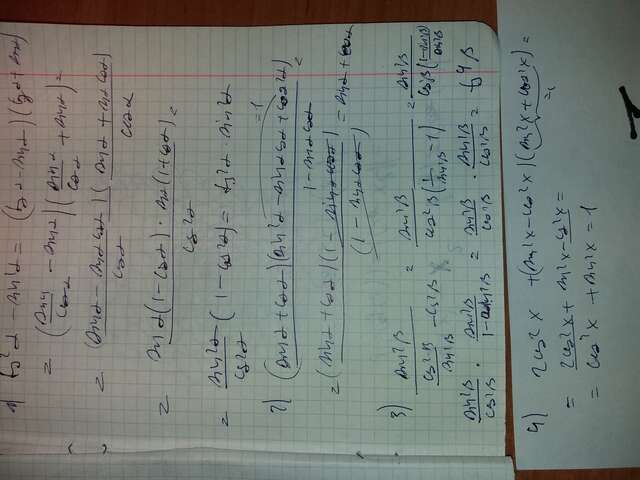 1) tg²α - sin²α = (tgα - sinα)(tgα + sinα)
= (sinα/cosα - sinα)(sinα/cosα + sinα) =
= (sinα - sinα cosα)/cosα · (sinα + sinα cosα)/cosα
= sinα(1 - cosα) · sinα(1 + cosα)/cos²α =
= sin²α/cos²α (1 - cos²α) = tg²α · sin²α
=1
2) (sinα + cosα)(sin²α - sinα cosα + cos²α)/(1 - sinα cosα) =
= (sinα + cosα)(1 - sinα cosα)/(1 - sinα cosα) = sinα + cosα
3) sin²β/(cos²β/sin²β - cos²β) = sin²β/(cos²β(1/sin²β - 1)) = sin²β/(cos²β((1 - sin²β)/sin²β))
sin²β/cos²β · sin²β/(1 - sin²β) = sin²β/cos²β · sin²β/cos²β = tg⁴β
4) 2cos²x + (sin²x - cos²x)(sin²x + cos²x) =
=1
= 2cos²x + sin²x - cos²x =
= cos²x + sin²x = 1